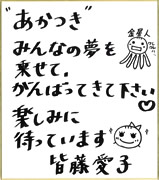 "あかつき"
みんなの夢を
乗せて。
がんばってきて下さい
楽しみに
待っています
皆藤愛子
金星人